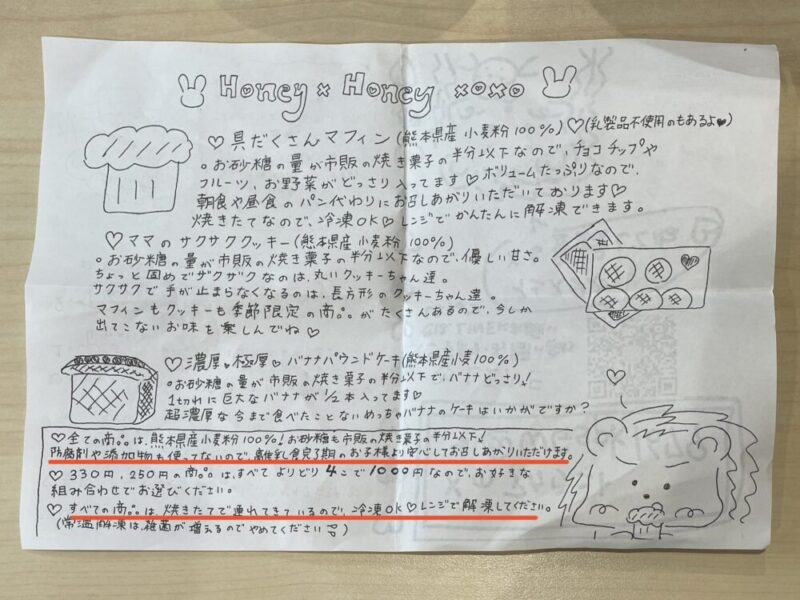 Honey x Honey xoxo
♡具だくさんマフィン(熊本県産小麦粉100%)♡(乳製品不使用のもあるよ♥)
。お砂糖の量が市販の焼き菓子の半分以下なので、チョコチップや
フルーツ、お野菜がどっさり入ってます♡ボリュームたっぷりなので、
朝食や昼食のパン代わりにお召しあがりいただいております♡
焼きたてなので、冷凍OK♡レンジでかんたんに解凍できます。
♡ママのサクサククッキー(熊本県産小麦粉100%)
。お砂糖の量が市販の焼き菓子の半分以下なので、優しい甘さ。
ちょっと固めでザクザクなのは、丸いクッキーちゃん達。
サクサクで手が止まらなくなるのは、長方形のクッキーちゃん達。
マフィンもクッキーも季節限定の商品がたくさんあるので、今しか
出てこないお味を楽しんでね♡
♡濃厚♥極厚♡バナナパウンドケーキ(熊本県産小麦100%)
。お砂糖の量が市販の焼き菓子の半分以下で、バナナどっさり!
1切れに巨大なバナナが1/2本入ってます♡
超濃厚な今まで食べたことないめっちゃバナナのケーキはいかがですか?
♡全ての商品は、熊本県産小麦粉100%!お砂糖も市販の焼き菓子の半分以下!
防腐剤や添加物も使ってないので、離乳食完了期のお子様より安心してお召しあがりいただけます。
♡330円、250円の商品は、すべてよりどり4こで1000円なので、お好きな
組み合わせでお選びください。
♡すべての商品は、焼きたてで連れてきているので、冷凍OK♡レンジで解凍してください。
(常温解凍は雑菌が増えるのでやめてください)